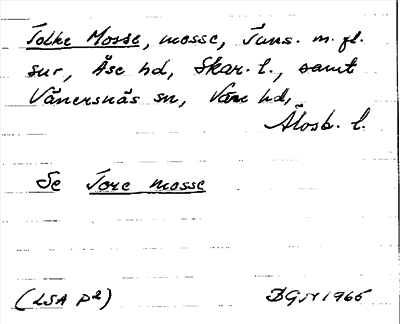 Tolke Mosse, mosse, Tuns. m. fl.
snr, Åse hd, Skar. l., samt
Vänersnäs sn, Väne hd,
Älvsb. l.
Se Tore mosse
(LSA P2)
BGN 1965